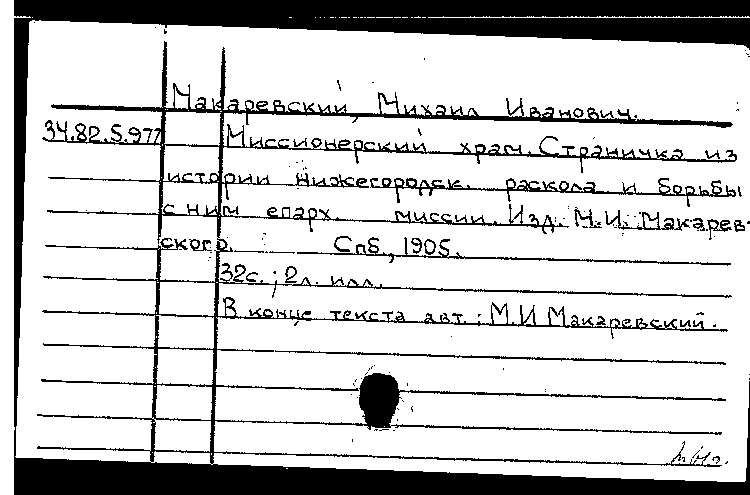 Макаревский, Михаил Иванович.
34.82.5.977 Миссионерский храм. Страничка из
истории нижегородск. раскола и борьбы
с ним епарх. миссии. Изд. М.И. Макарев-
ского. Спб., 1905.
32с.; 2л. илл.
В конце текста авт.: М.И Макаревский.